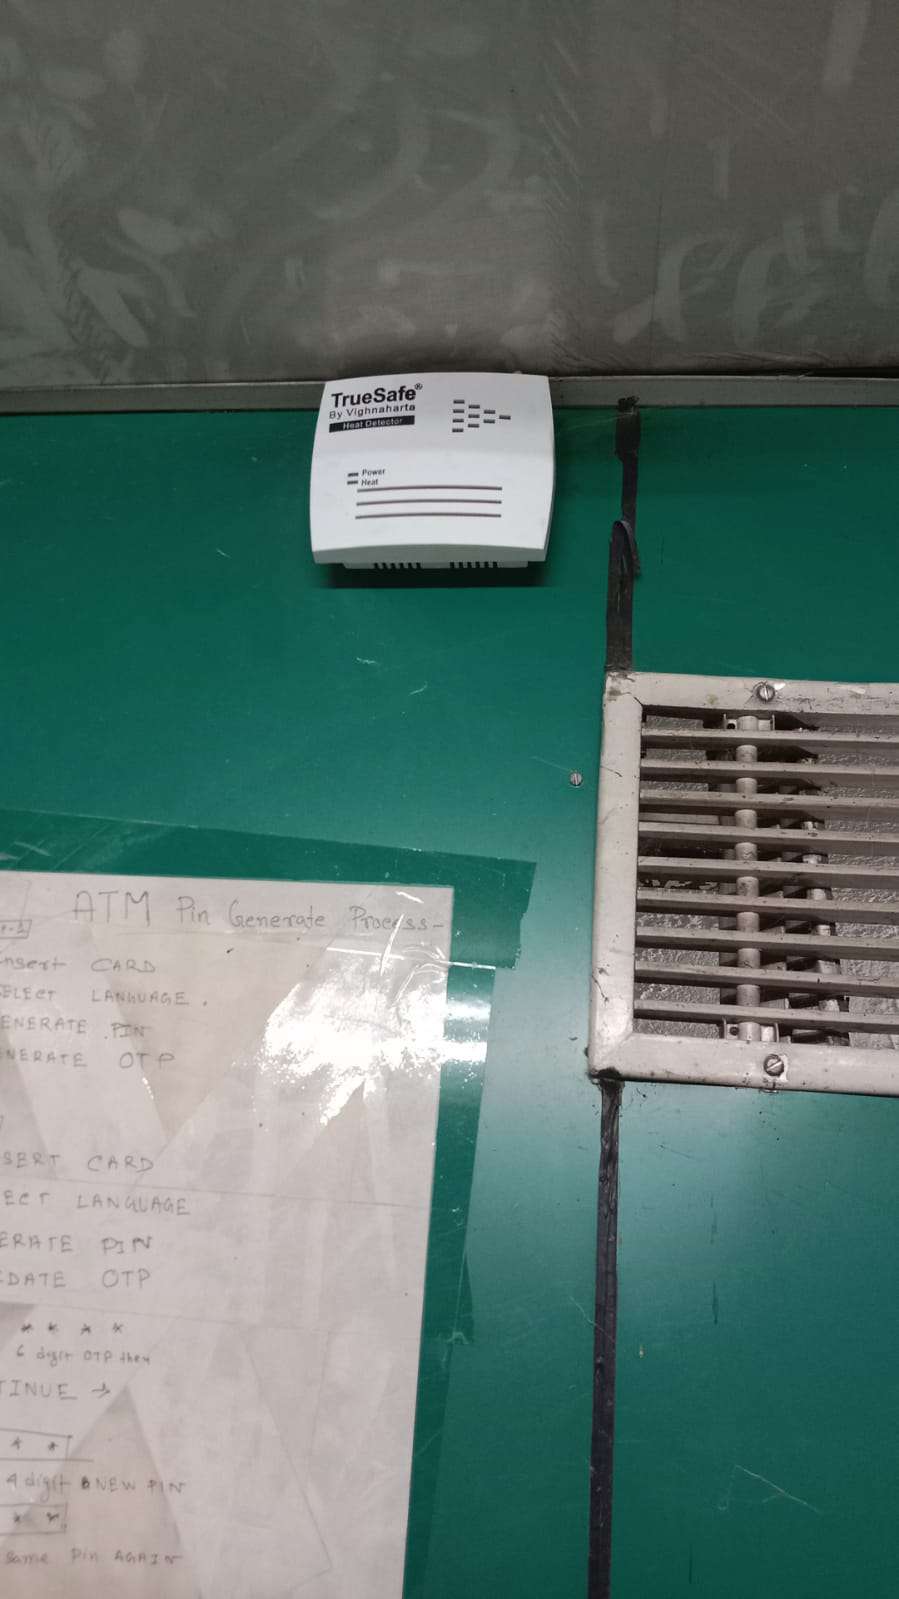 TrueSafe®
By Vighnaharta
Heat Detector
Power
Heat
ATM Pin Generate Process-
Insert CARD
SELECT LANGUAGE.
ENERATE PIN
ENERATE OTP
SERT CARD
ECT LANGUAGE
ERATE PIN
DATE OTP
* * * *
6 digit OTP then
TINUE →
* *
4 digit NEW PIN
* *
Same Pin AGAIN